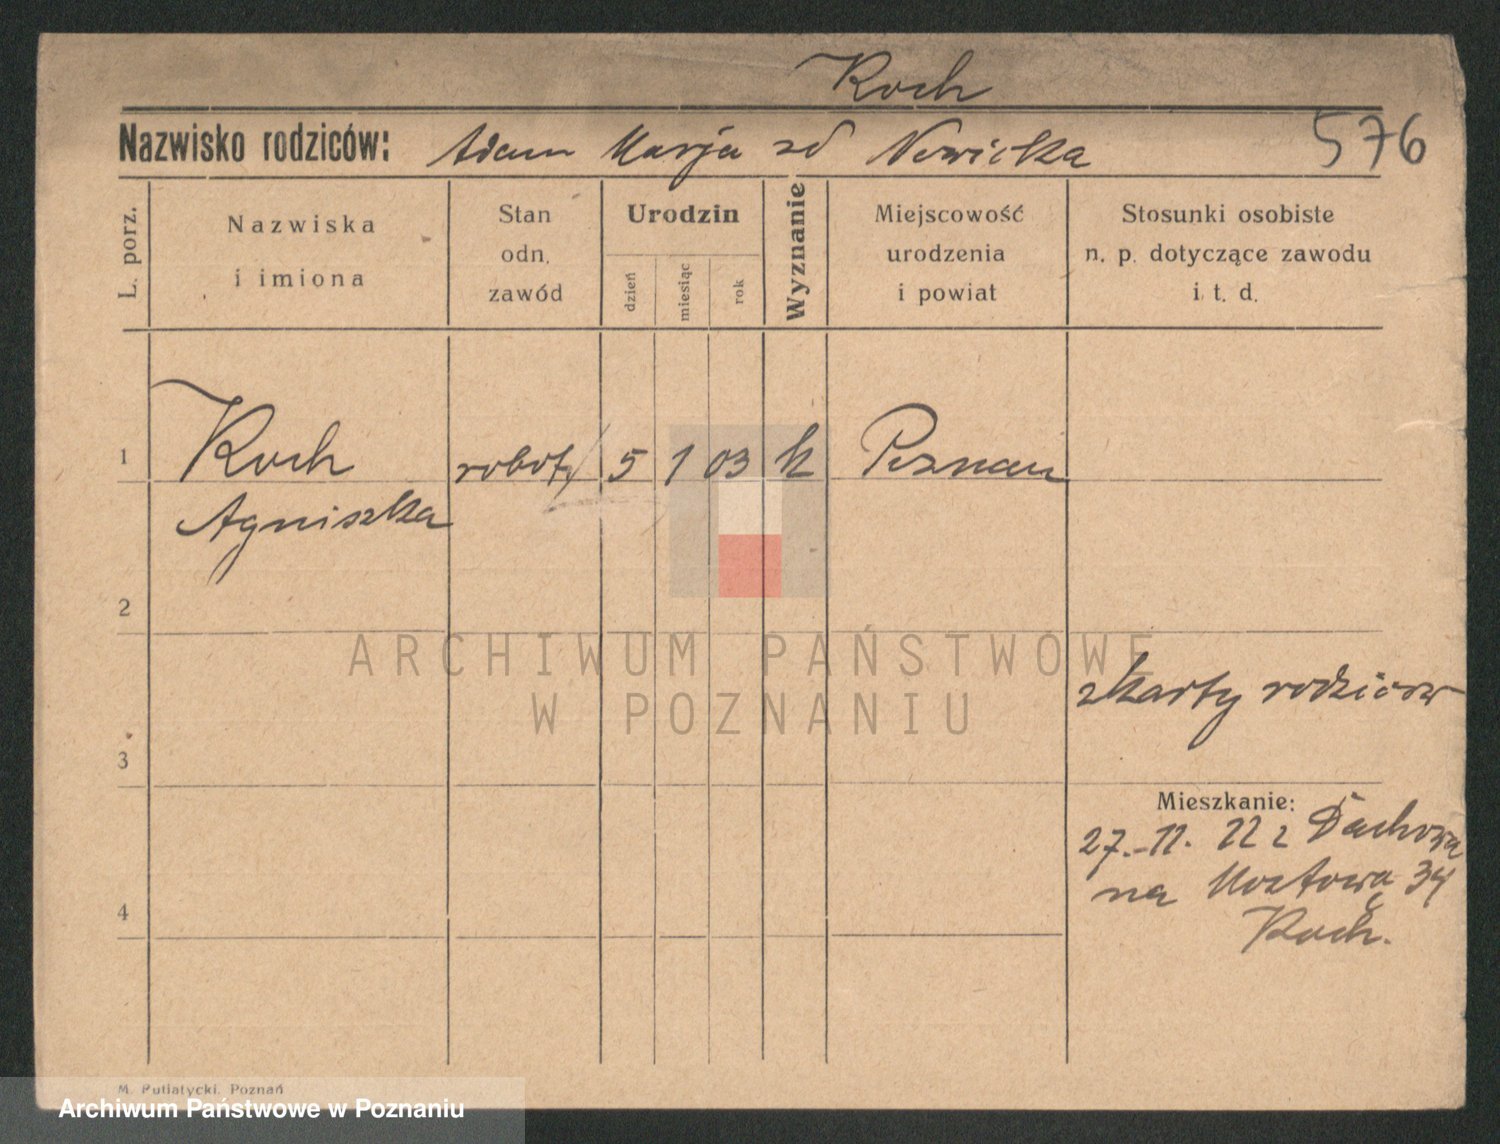 Koch
Nazwisko rodziców: Adam Marja zd Nowicka 576
L. porz.
Nazwiska
i imiona
Stan
odn.
zawód
Urodzin
dzień
miesiąc
rok
Wyznanie
Miejscowość
urodzenia
i powiat
Stosunki osobiste
n. p. dotyczące zawodu
i. t. d.
1 Koch robot. 5 1 03 k Poznań
Agniszka
2
ARCHIWUM PAŃSTWOWE
W POZNANIU
z karty rodziców
3
Mieszkanie:
27.-11. 22 z Dachowa
na Mostową 34
4
Koch.
M. Putiatycki, Poznań
Archiwum Państwowe w Poznaniu